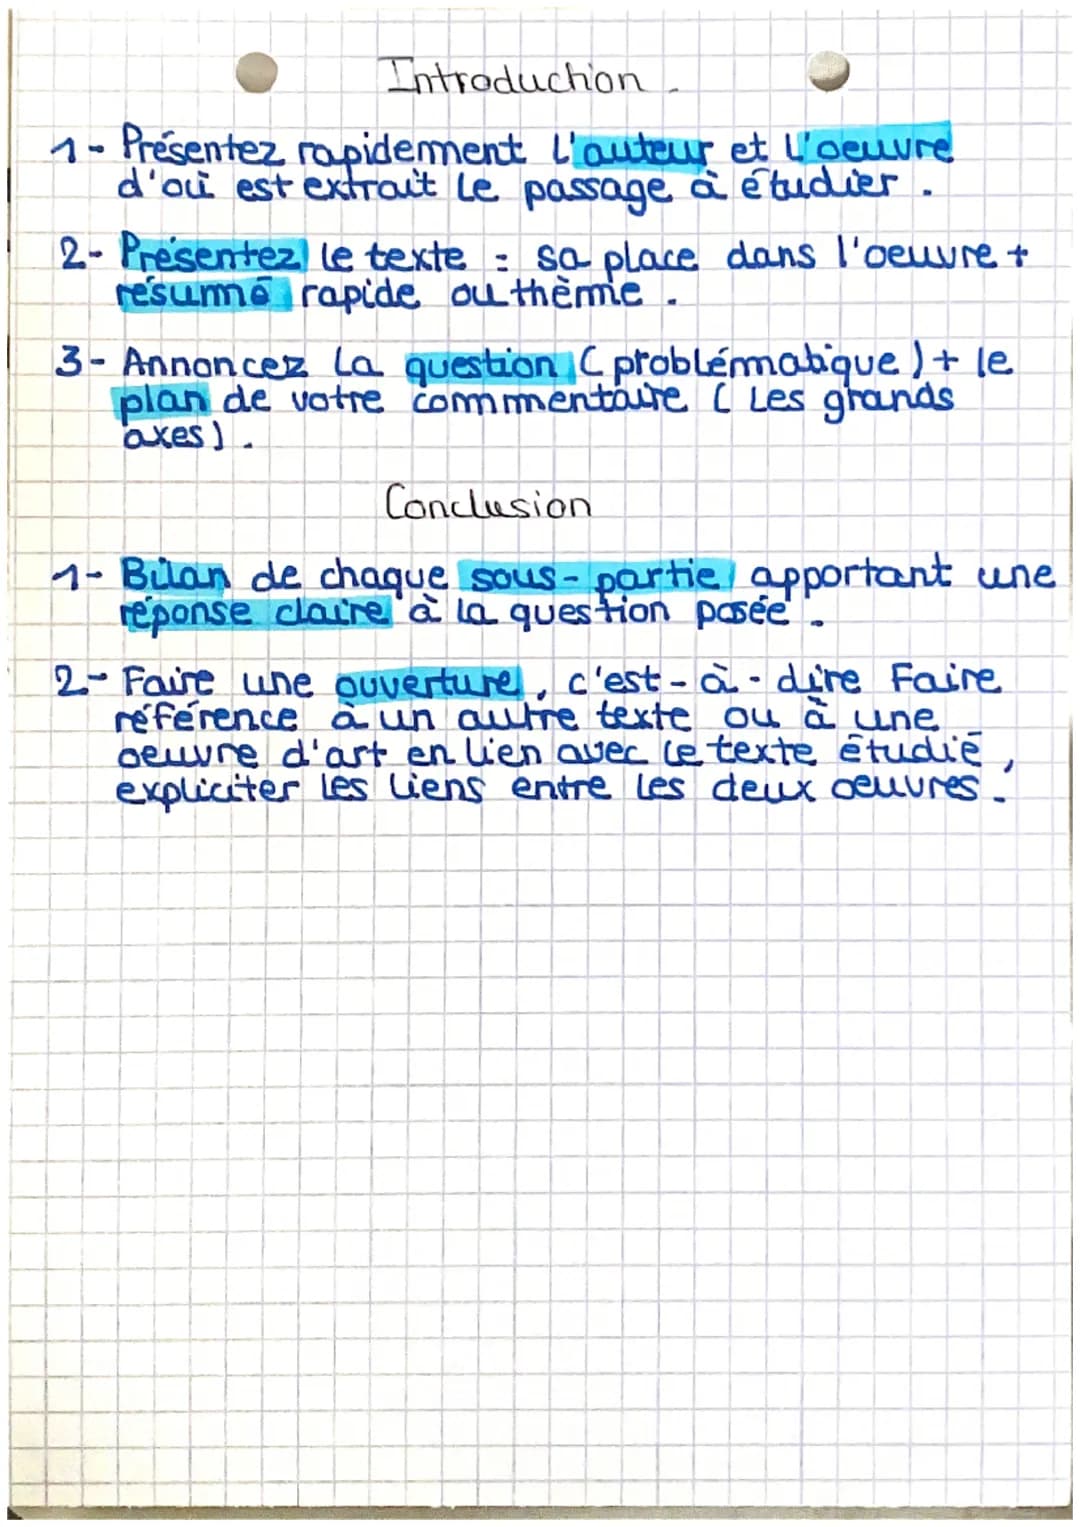 Introduction.
1- Présentez rapidement l'auteur et l'oeuvre
d'où est extrait le passage à étudier.
2- Présentez le texte : sa place dans l'oeuvre +
résumé rapide ou thème.
3- Annoncez la question (problématique) + le
plan de votre commentaire (les grands
axes).
Conclusion
1- Bilan de chaque sous-partie apportant une
réponse claire à la question posée.
2- Faire une ouverture, c'est-à-dire Faire
référence à un autre texte ou à une
oeuvre d'art en lien avec le texte étudié,
expliciter les liens entre les deux oeuvres.